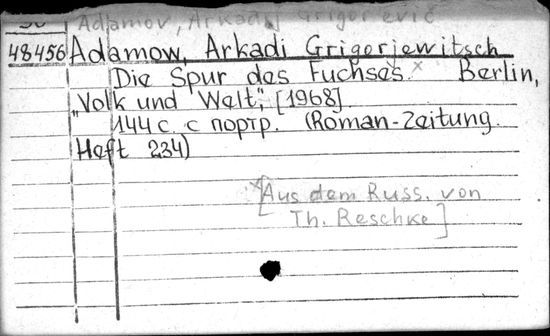 Adamov, Arkadij Grigor'evič
48456 Adamow, Arkadi Grigorjewitsch
Die Spur des Fuchses. × Berlin,
"Volk und Welt", [1968].
144 с. с портр. (Roman-Zeitung.
Heft 234)
×[Aus dem Russ. von
Th. Reschke]